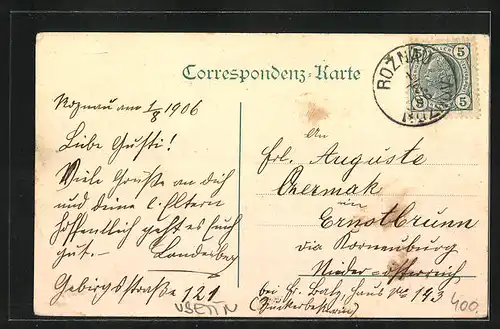 Correspondenz-Karte
ROŽNAU
5 5
Roznau am 1/8 1906
Liebe Gusti!
Viele Grüße an dich
und deine l. Eltern
hoffentlich geht es Euch
gut. —
Gebirgsstraße 121
An
Frl. Auguste
Czermak
in
Ernstbrunn
via Korneuburg
Nieder-österreich
bei Fr. Haus No 193
400.